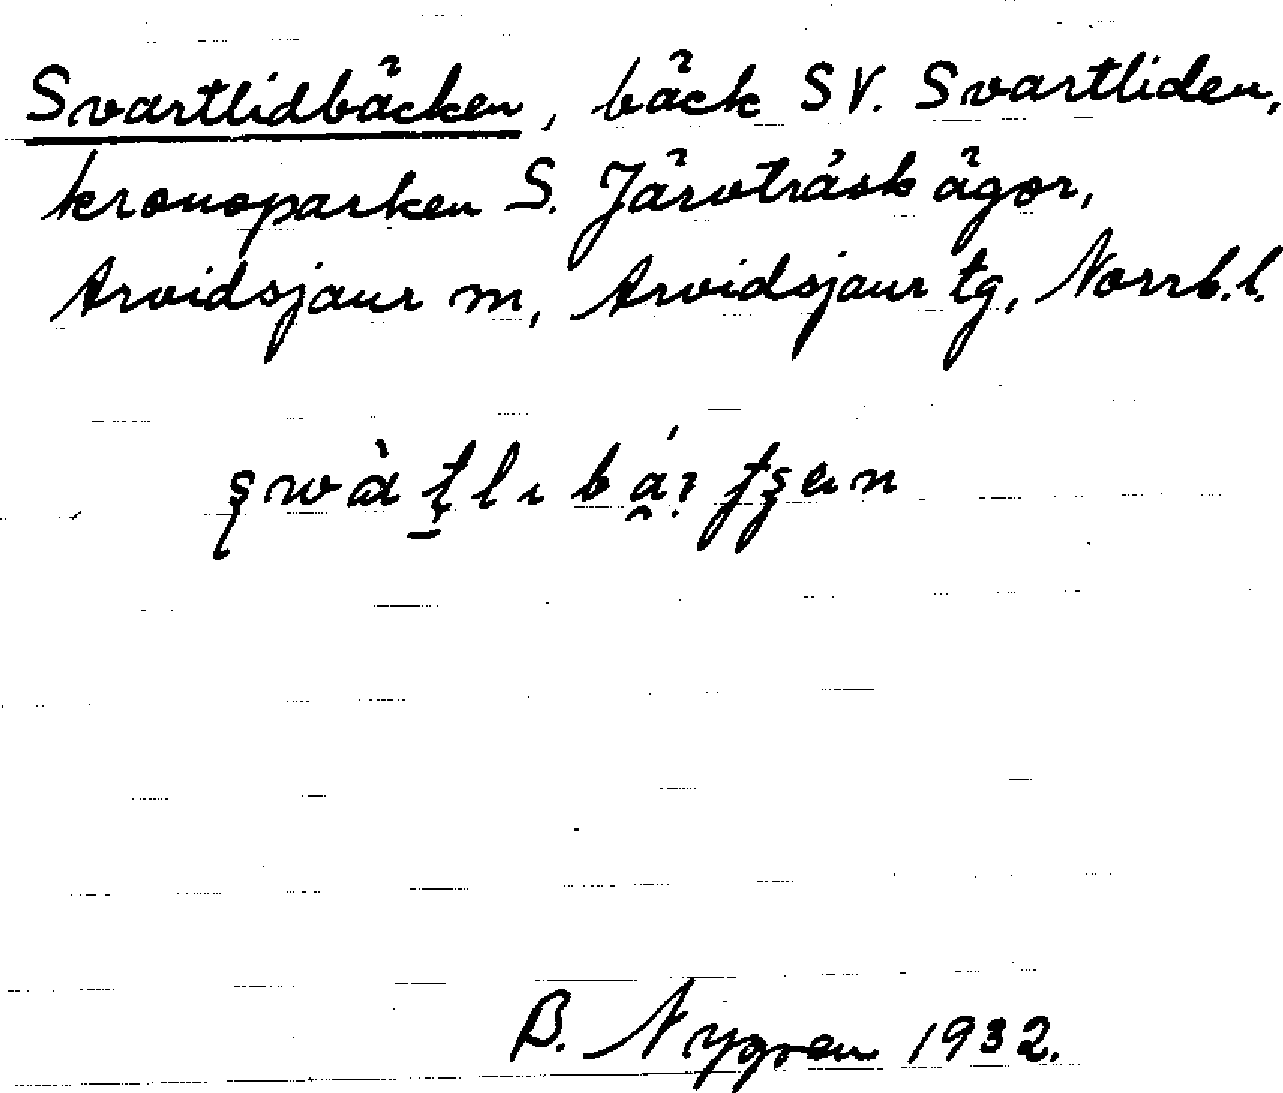 Svartlidbäcken, bäck SV. Svartliden,
kronoparken S. Järvträsk ägor,
Arvidsjaur m, Arvidsjaur tg, Norrb.l.
B. Nygren 1932.